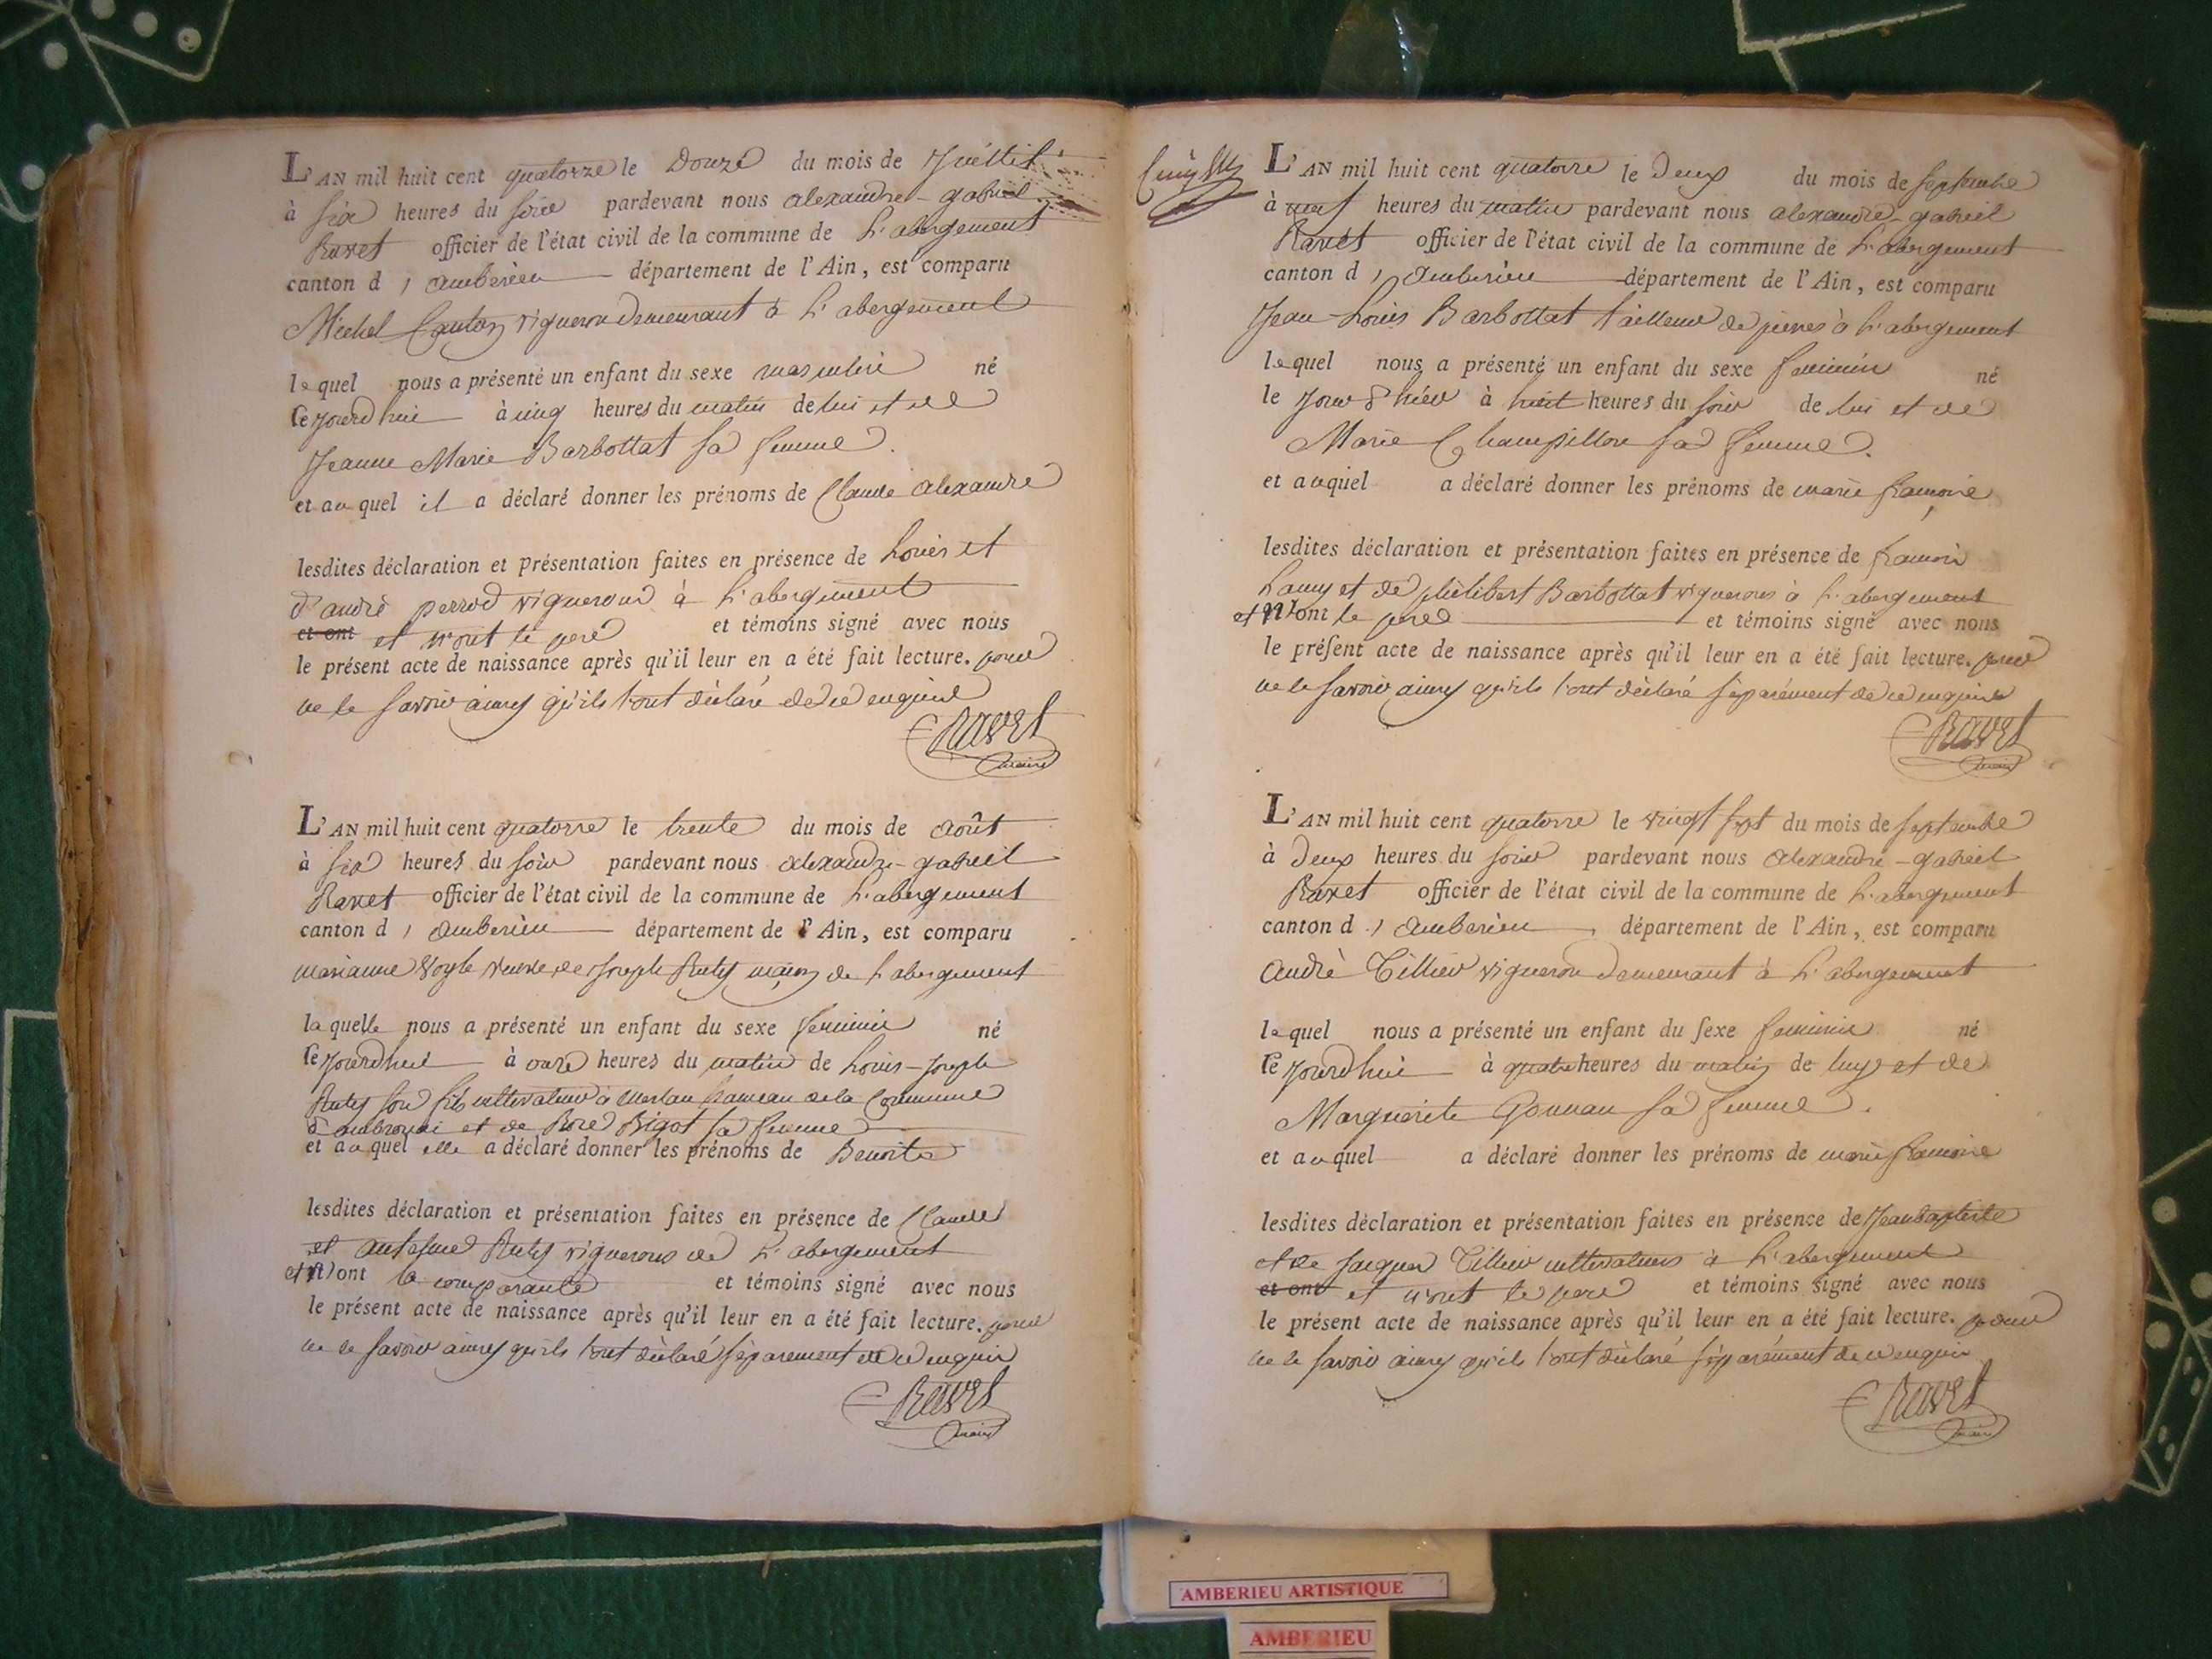 L'AN mil huit cent quatorze le Douze du mois de Juillet
à six heures du soir pardevant nous alexandre-gabriel
Ravet officier de l'état civil de la commune de L'abergement
canton d'amberieu département de l'Ain, est comparu
Michel vigneron demeurant à L'abergement
lequel nous a présenté un enfant du sexe masculin né
Cejourdhui à cinq heures du matin de lui et de
Jeanne Marie Barbottat sa femme.
et auquel il a déclaré donner les prénoms de Claude alexandre
lesdites déclaration et présentation faites en présence de Louis et
d'andré perrod vignerons à L'abergement
et ont et n'ont le pere et témoins signé avec nous
le présent acte de naissance après qu'il leur en a été fait lecture. pour
ne le savoir ainsy qu'ils l'ont déclaré de ce enquis
Ravet
maire
L'AN mil huit cent quatorze le trente du mois de Août
à six heures du soir pardevant nous alexandre-gabriel
Ravet officier de l'état civil de la commune de L'abergement
canton d'amberieu département de l'Ain, est comparu
marianne veuve de Joseph maçon de L'abergement
laquelle nous a présenté un enfant du sexe feminin né
Cejourdhui à onze heures du matin de Louis-Joseph
son fils cultivateur à hameau de la Commune
d'ambronai et de Rose Bigot sa femme
et auquel elle a déclaré donner les prénoms de Benoite
lesdites déclaration et présentation faites en présence de Claude
et antelme vignerons de L'abergement
et N'ont la comparante et témoins signé avec nous
le présent acte de naissance après qu'il leur en a été fait lecture. pour
ne le savoir ainsy qu'ils l'ont déclaré séparement de ce enquis
Ravet
maire
L'AN mil huit cent quatorze le Deux du mois de septembre
à neuf heures du matin pardevant nous alexandre-gabriel
Ravet officier de l'état civil de la commune de L'abergement
canton d'amberieu département de l'Ain, est comparu
Jean-Louis Barbottat tailleur de pierres à L'abergement
lequel nous a présenté un enfant du sexe feminin né
le Jour d'hier à huit heures du soir de lui et de
Marie Champillon sa femme.
et auquel a déclaré donner les prénoms de marie françoise
lesdites déclaration et présentation faites en présence de françois
et de philibert Barbottat vignerons à L'abergement
et N'ont le pere et témoins signé avec nous
le présent acte de naissance après qu'il leur en a été fait lecture. pour
ne le savoir ainsy qu'ils l'ont déclaré séparément de ce enquis
Ravet
maire
L'AN mil huit cent quatorze le vingt sept du mois de septembre
à Deux heures du soir pardevant nous alexandre-gabriel
Ravet officier de l'état civil de la commune de L'abergement
canton d'amberieu département de l'Ain, est comparu
André Tillier vigneron demeurant à L'abergement
lequel nous a présenté un enfant du sexe feminin né
Cejourdhui à quatre heures du matin de luy et de
Marguerite Gonnau sa femme.
et auquel a déclaré donner les prénoms de marie françoise
lesdites déclaration et présentation faites en présence de Jeanbaptiste
et de Jacques Tillier cultivateurs à L'abergement
et ont et n'ont le pere et témoins signé avec nous
le présent acte de naissance après qu'il leur en a été fait lecture. pour
ne le savoir ainsy qu'ils l'ont déclaré séparément de ce enquis
Ravet
maire
AMBERIEU ARTISTIQUE
AMBERIEU